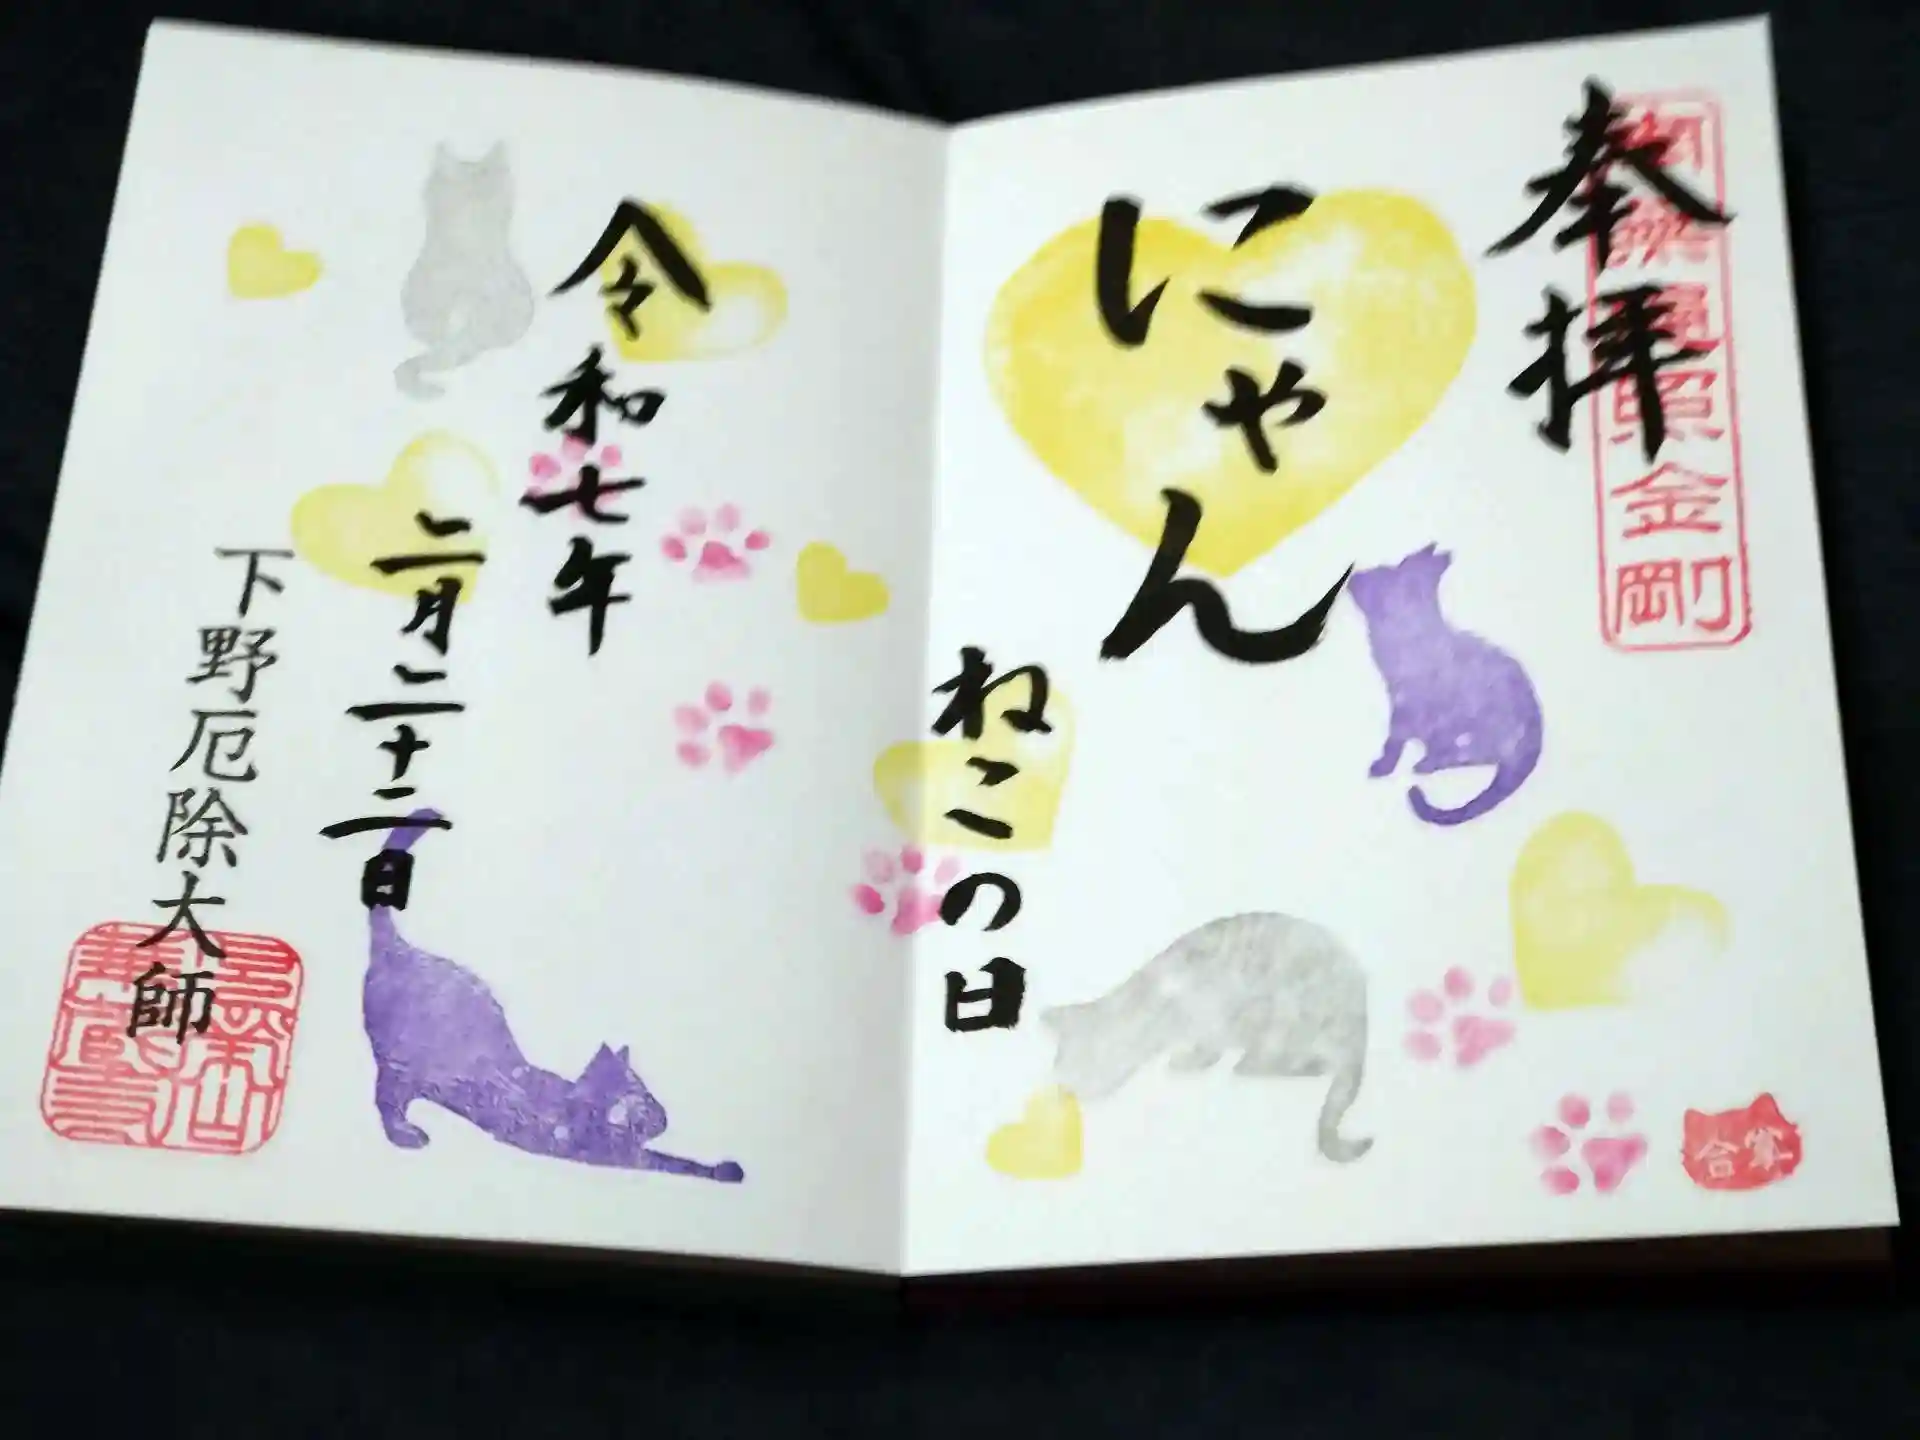 奉拝
南無遍照金剛
にゃん
ねこの日
合掌
令和七年
二月二十二日
下野厄除大師